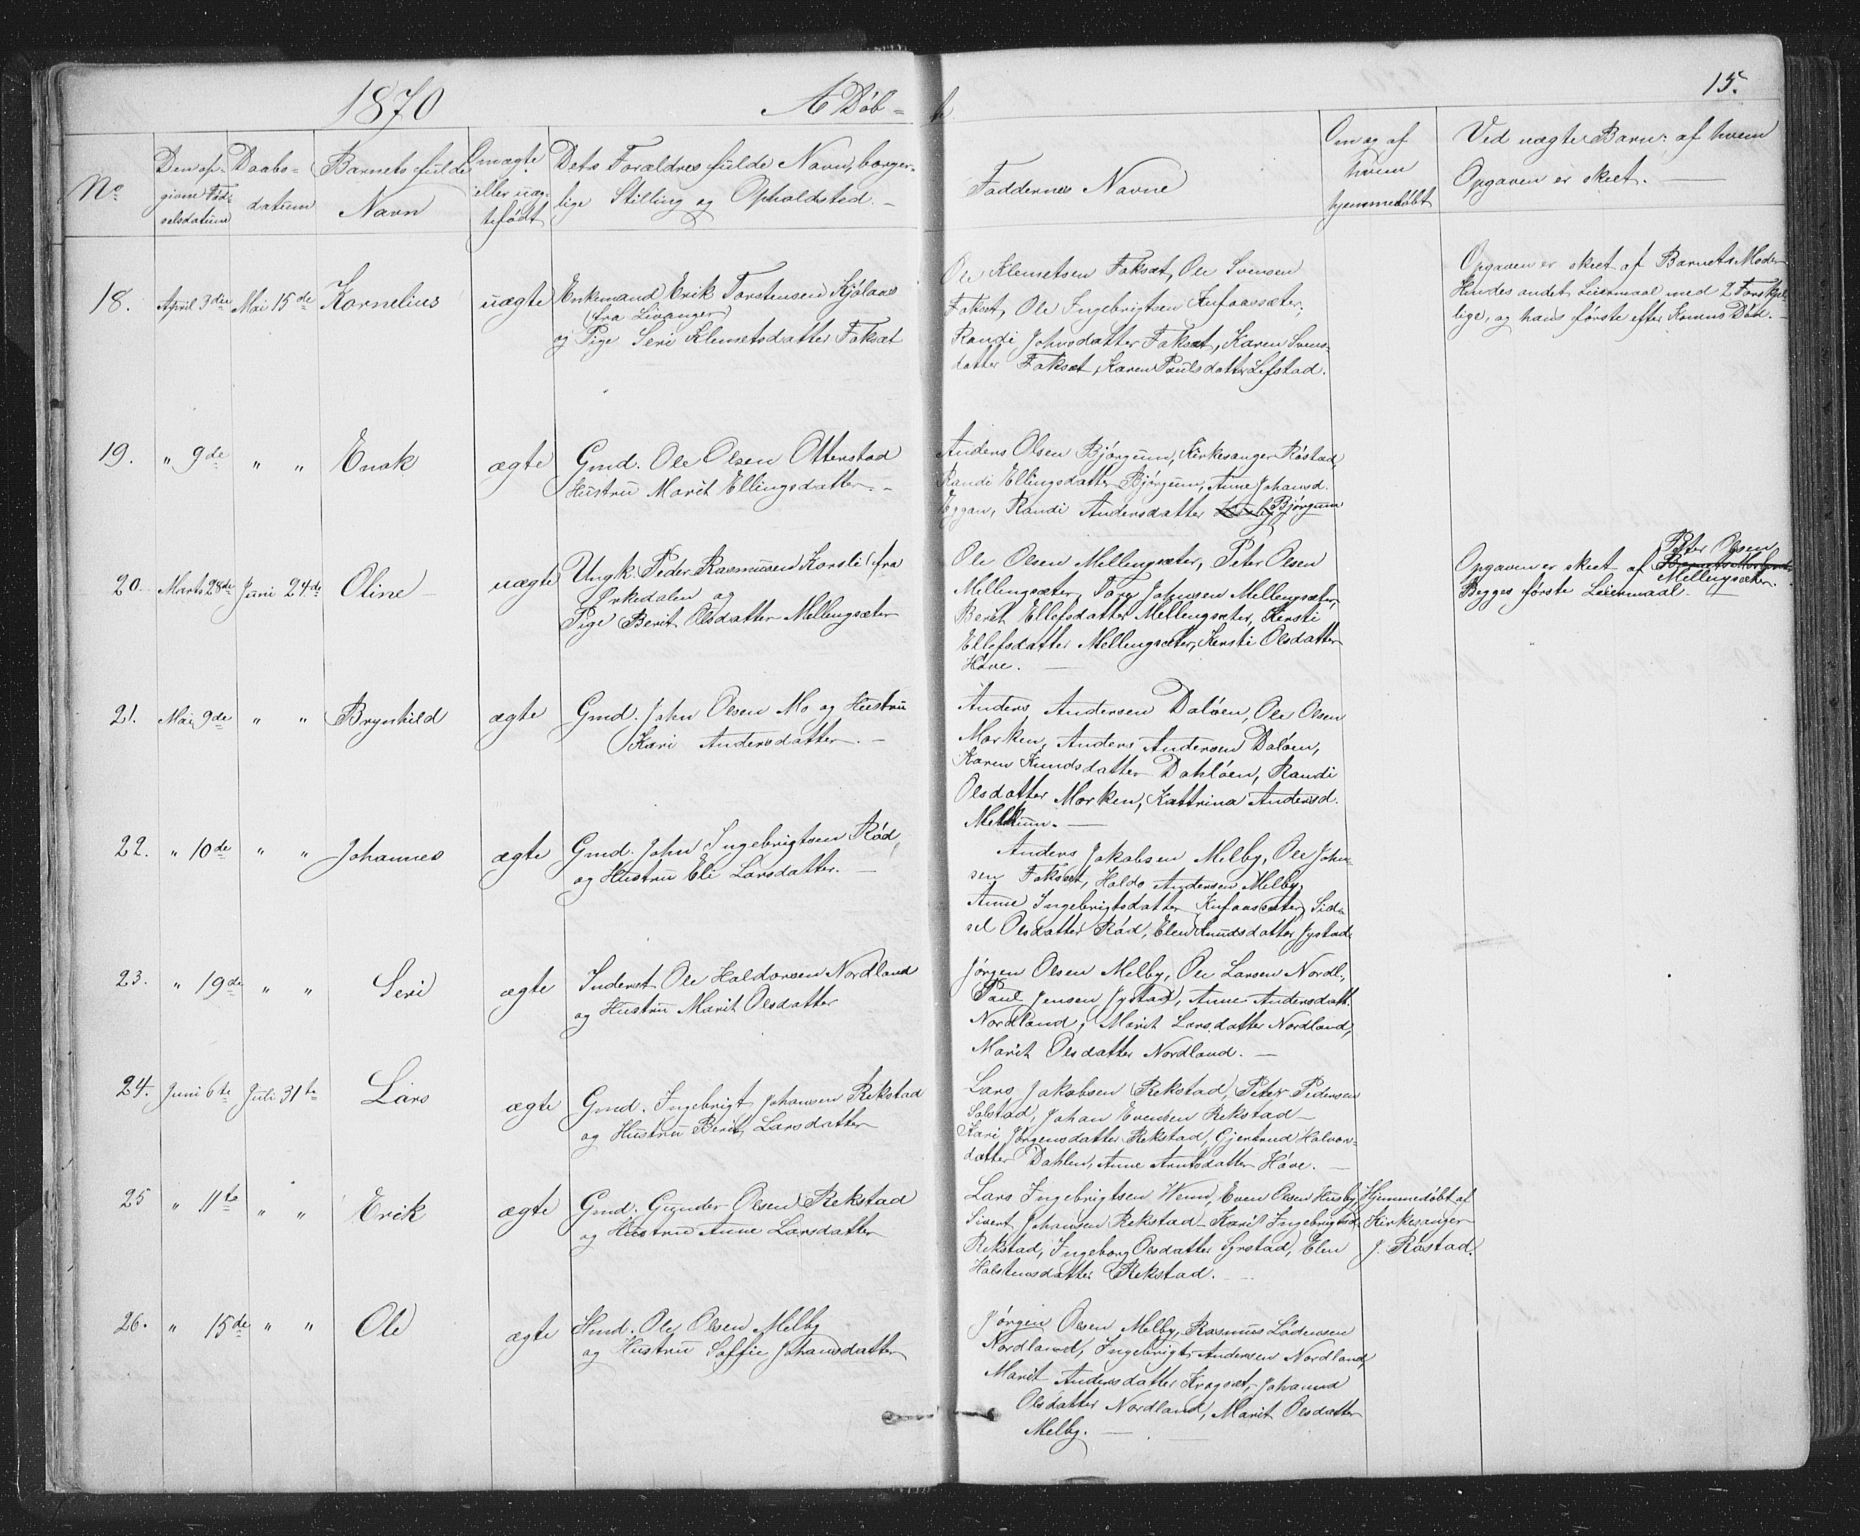 1870
A Døb=
t.
15.
No
Den op-
givne Fød-
selsdatum
Daabs-
datum
Barnets fulde
Navn
Om ægte
eller uæg-
tefødt
Dets Forældres fulde Navn, borger-
lige Stilling og Opholdsted. –
Faddernes Navne
Om og af
hvem
hjemmedøbt
Ved uægte Børn: af hvem
Opgaven er skeet. —
18.
April 3die
Mai 15de
Kornelius
uægte
Enkemand Erik Torstensen Kjølaas
(fra Levanger)
og Pige Seri Klemetsdatter Foksæt
Ole Klemetsen Foksæt, Ole Svensen
Foksæt, Ole Ingebrigtsen Kufaassæter,
Randi Johnsdatter Foksæt, Karen Svens-
datter Foksæt, Karen Paulsdatter Lefstad.
Opgaven er skeet af Barnets Moder
Hendes andet Leiermaal med 2 Forskjel-
lige, og hans første efter Konens Død. –
19.
" 9de
" "
Enok
ægte
Gmd. Ole Olsen Otterstad
Hustru Marit Ellingsdatter. –
Anders Olsen Bjørgum, Kirkesanger Røstad,
Randi Ellingsdatter Bjørgum, Anne Johansd.
Eggan, Randi Andersdatter Bjørgum
20.
Marts 28de
Juni 24de
Oline
uægte
Ungk. Peder Rasmussen Korsli (fra
Orkedalen og
Pige Berit Olsdatter Mellingsæter
Ole Olsen Mellingsæter, Peter Olsen
Mellingsæter, Tore Johnsen Mellingsæter,
Berit Ellefsdatter Mellingsæter, Kersti
Ellefsdatter Mellingsæter, Kersti Olsdatter
Hove. —
Peter Olsen
Opgaven er skeet af Barnets
Mellingsæter.
Begges første Leiermaal.
21.
Mai 9de
" "
Brynhild
ægte
Gmd. John Olsen Mo og Hustru
Kari Andersdatter. –
Anders Andersen Daløen, Ole Olsen
Morken, Anders Andersen Daløen,
Karen Knudsdatter Dahløen, Randi
Olsdatter Morken, Kattrina Andersd.
Melhum. —
22.
" 10de
" "
Johannes
ægte
Gmd. John Ingebrigtsen Rød,
og Hustru Eli Larsdatter. —
Anders Jakobsen Melby, Ole John-
sen Foksæt, Haldo Andersen Melby,
Anne Ingebrigtsdatter Kufaassæter, Sid-
sel Olsdatter Rød, Elen Knudsdatter Jystad
23.
" 19de
" "
Seri
ægte
Inderst Ole Haldorsen Nordland
og Hustru Marit Olsdatter
Jørgen Olsen Melby, Ole Larsen Nordl.,
Paul Jensen Jystad, Anne Andersdatt.
Nordland, Marit Larsdatter Nordland,
Marit Olsdatter Nordland. —
24.
Juni 6te
Juli 31te
Lars
ægte
Gmd. Ingebrigt Johansen Rekstad
og Hustru Berit Larsdatter
Lars Jakobsen Rekstad, Peter Pedersen
Solstad, Johan Evensen Rekstad
Kari Jørgensdatter Rekstad, Gjertrud Halvors-
datter Dahlen, Anne Arntsdatter Hove. —
25
" 11te
" "
Erik
ægte
Gmd. Gunder Olsen Rekstad
og Hustru Anne Larsdatter
Lars Ingebrigtsen Wenn, Even Olsen Husby,
Sivert Johansen Rekstad, Kari Ingebrigtsd.
Rekstad, Ingeborg Olsdatter Syrstad, Elen
Halstensdatter Rekstad.
Hjemmedøbt af
Kirkesanger
J. Røstad.
26.
" 15de
" "
Ole
ægte
Hmd. Ole Olsen Melby
og Hustru Soffie Johansdatter
Jørgen Olsen Melby, Rasmus Lødensen
Nordland, Ingebrigt Andersen Nordland,
Marit Andersdatter Krogsæt, Johanna
Olsdatter Nordland, Marit Olsdatter
Melby. —